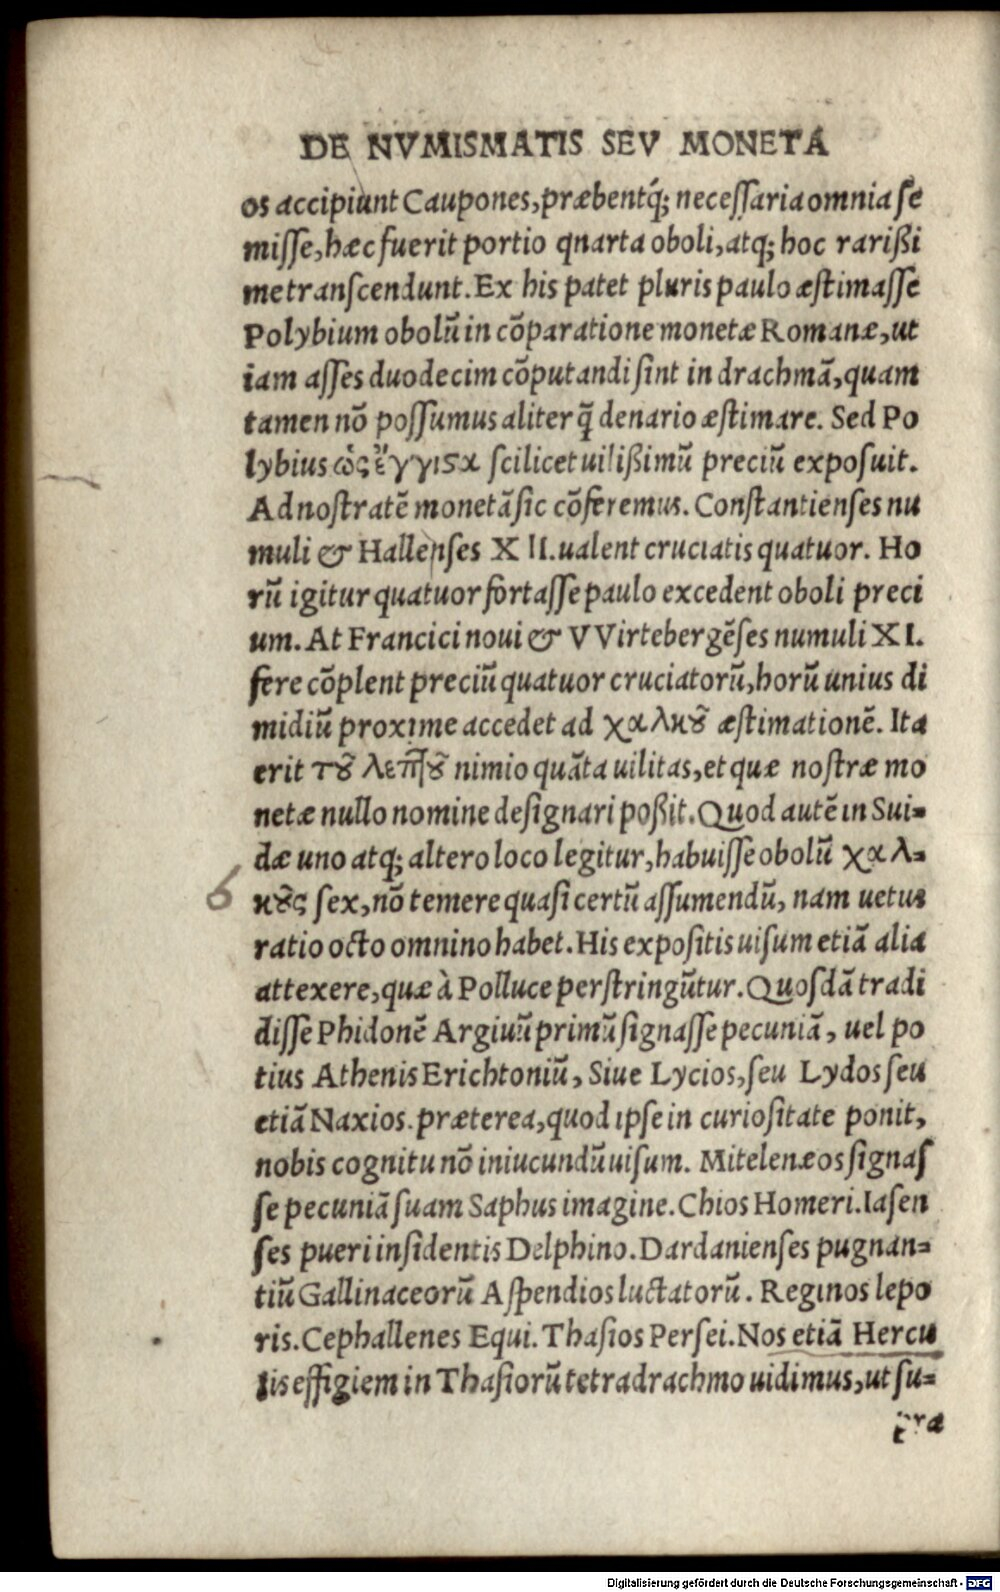 DE NVMISMATIS SEV MONETA
os accipiunt Caupones, præbentq́; necessaria omnia se
misse, hæc fuerit portio quarta oboli, atq; hoc rarißi
me transcendunt. Ex his patet pluris paulo æstimasse
Polybium obolũ in cõparatione monetæ Romanæ, ut
iam asses duodecim cõputandi sint in drachmã, quam
tamen nõ possumus aliter q̃ denario æstimare. Sed Po
lybius ὡς ἔγγιϛα scilicet uilißimũ preciũ exposuit.
Ad nostratẽ monetã sic cõferemus. Constantienses nu
muli & Hallenses XII. ualent cruciatis quatuor. Ho
rũ igitur quatuor fortasse paulo excedent oboli preci
um. At Francici noui & VVirtebergẽses numuli XI.
fere cõplent preciũ quatuor cruciatorũ, horũ unius di
midiũ proxime accedet ad χαλκȣ̃ æstimationẽ. Ita
erit τȣ̃ λεπτȣ̃ nimio quãta uilitas, et quæ nostræ mo
netæ nullo nomine designari poßit. Quod autẽ in Sui=
dæ uno atq; altero loco legitur, habuisse obolũ χαλ=
6 κȣ̃ς sex, nõ temere quasi certũ assumendũ, nam uetus
ratio octo omnino habet. His expositis uisum etiã alia
attexere, quæ à Polluce perstringũtur. Quosdã tradi
disse Phidonẽ Argiuũ primũ signasse pecuniã, uel po
tius Athenis Erichtoniũ, Siue Lycios, seu Lydos seu
etiã Naxios. præterea, quod ipse in curiositate ponit,
nobis cognitu nõ iniucundũ uisum. Mitelenæos signas
se pecuniã suam Saphus imagine. Chios Homeri. Iasen
ses pueri insidentis Delphino. Dardanienses pugnan=
tiũ Gallinaceorũ Aspendios luctatorũ. Reginos lepo
ris. Cephallenes Equi. Thasios Persei. Nos etiã Hercu
lis effigiem in Thasiorũ tetradrachmo uidimus, ut su=
pra
Digitalisierung gefördert durch die Deutsche Forschungsgemeinschaft - DFG